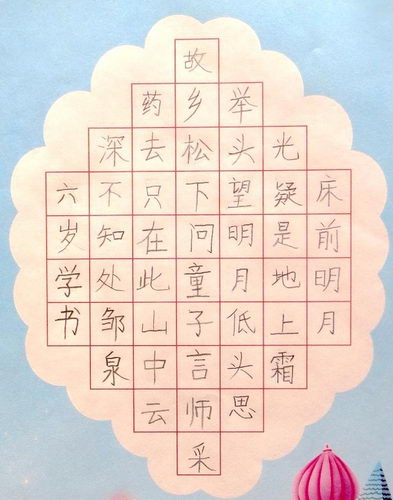 床前明月
光疑是地上霜
举头望明月低头思
故乡松下问童子言师采
药去只在此山中云
深不知处邹泉
六岁学书